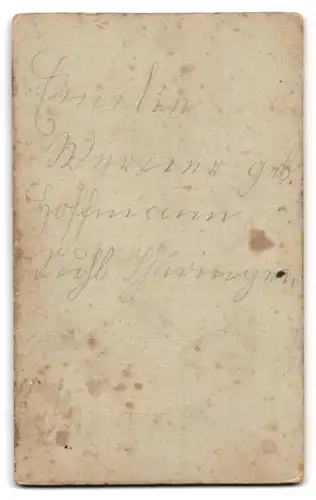 Emilin
Werner geb.
Hoffmann
Suhl Thüringen.